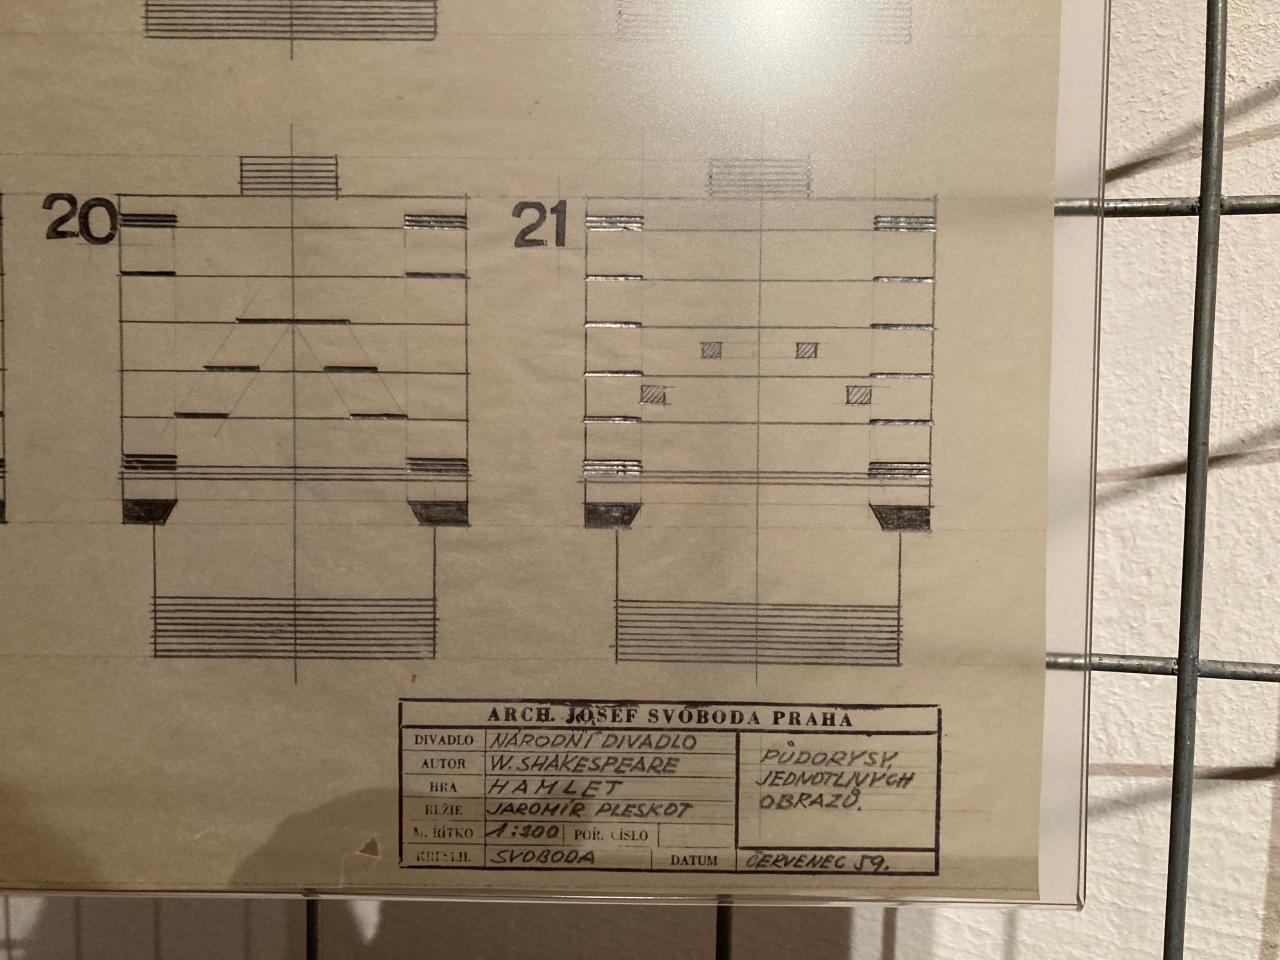 20
21
ARCH. JOSEF SVOBODA PRAHA
DIVADLO NÁRODNÍ DIVADLO
AUTOR W. SHAKESPEARE
HRA HAMLET
REŽIE JAROMÍR PLESKOT
MĚŘÍTKO 1:100 POŘ. ČÍSLO
KRESLIL SVOBODA DATUM ČERVENEC 59.
PŮDORYSY
JEDNOTLIVÝCH
OBRAZŮ.